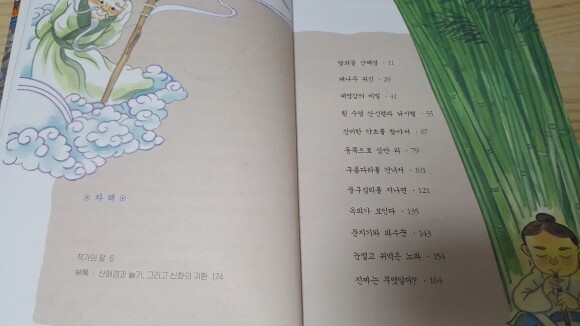 차례
작가의 말 6
부록 : 산해경과 놀기, 그리고 신화의 귀환 174
말하는 산해경 · 11
대나무 귀신 · 29
대영감의 비밀 · 41
흰 수염 산신령과 낚시법 · 55
신비한 약초를 찾아서 · 67
동쪽으로 삼만 리 · 79
구름다리를 건너서 · 101
물구십리를 지나면 · 121
옥의가 보인다 · 135
문지기와 파수꾼 · 143
눈멀고 귀먹은 노파 · 154
진짜는 무엇일까? · 164